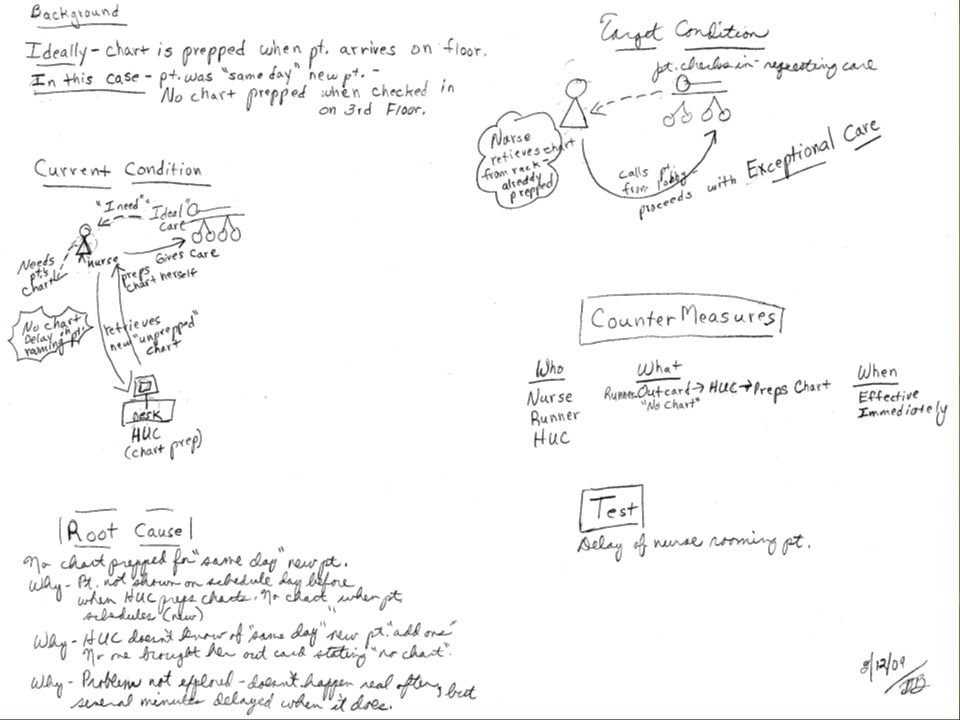 Background
Ideally - chart is prepped when pt. arrives on floor.
In this case - pt. was "same day" new pt. -
No chart prepped when checked in
on 3rd Floor.
Current Condition
"I need"
"Ideal"
care
Needs
pt.'s
chart
nurse
Gives care
preps
chart herself
No chart
Delay in
rooming pt.
retrieves
new "unprepped"
chart
DESK
HUC
(chart prep)
Root Cause
No chart prepped for "same day" new pt.
Why - Pt. not shown on schedule day before
when HUC preps charts. No chart when pt.
schedules (new)
Why - HUC doesn't know of "same day" new pt. "add ons"
No one brought her out card stating "no chart".
Why - Problem not explored - doesn't happen real often, but
several minutes delayed when it does.
Target Condition
pt. checks in - requesting care
Nurse
retrieves chart
from rack -
already
prepped
calls pt.
from lobby
proceeds with Exceptional Care
Counter Measures
Who
Nurse
Runner
HUC
What
Runner Outcard → HUC → Preps Chart
"No Chart"
When
Effective
Immediately
Test
Delay of nurse rooming pt.
8/12/09